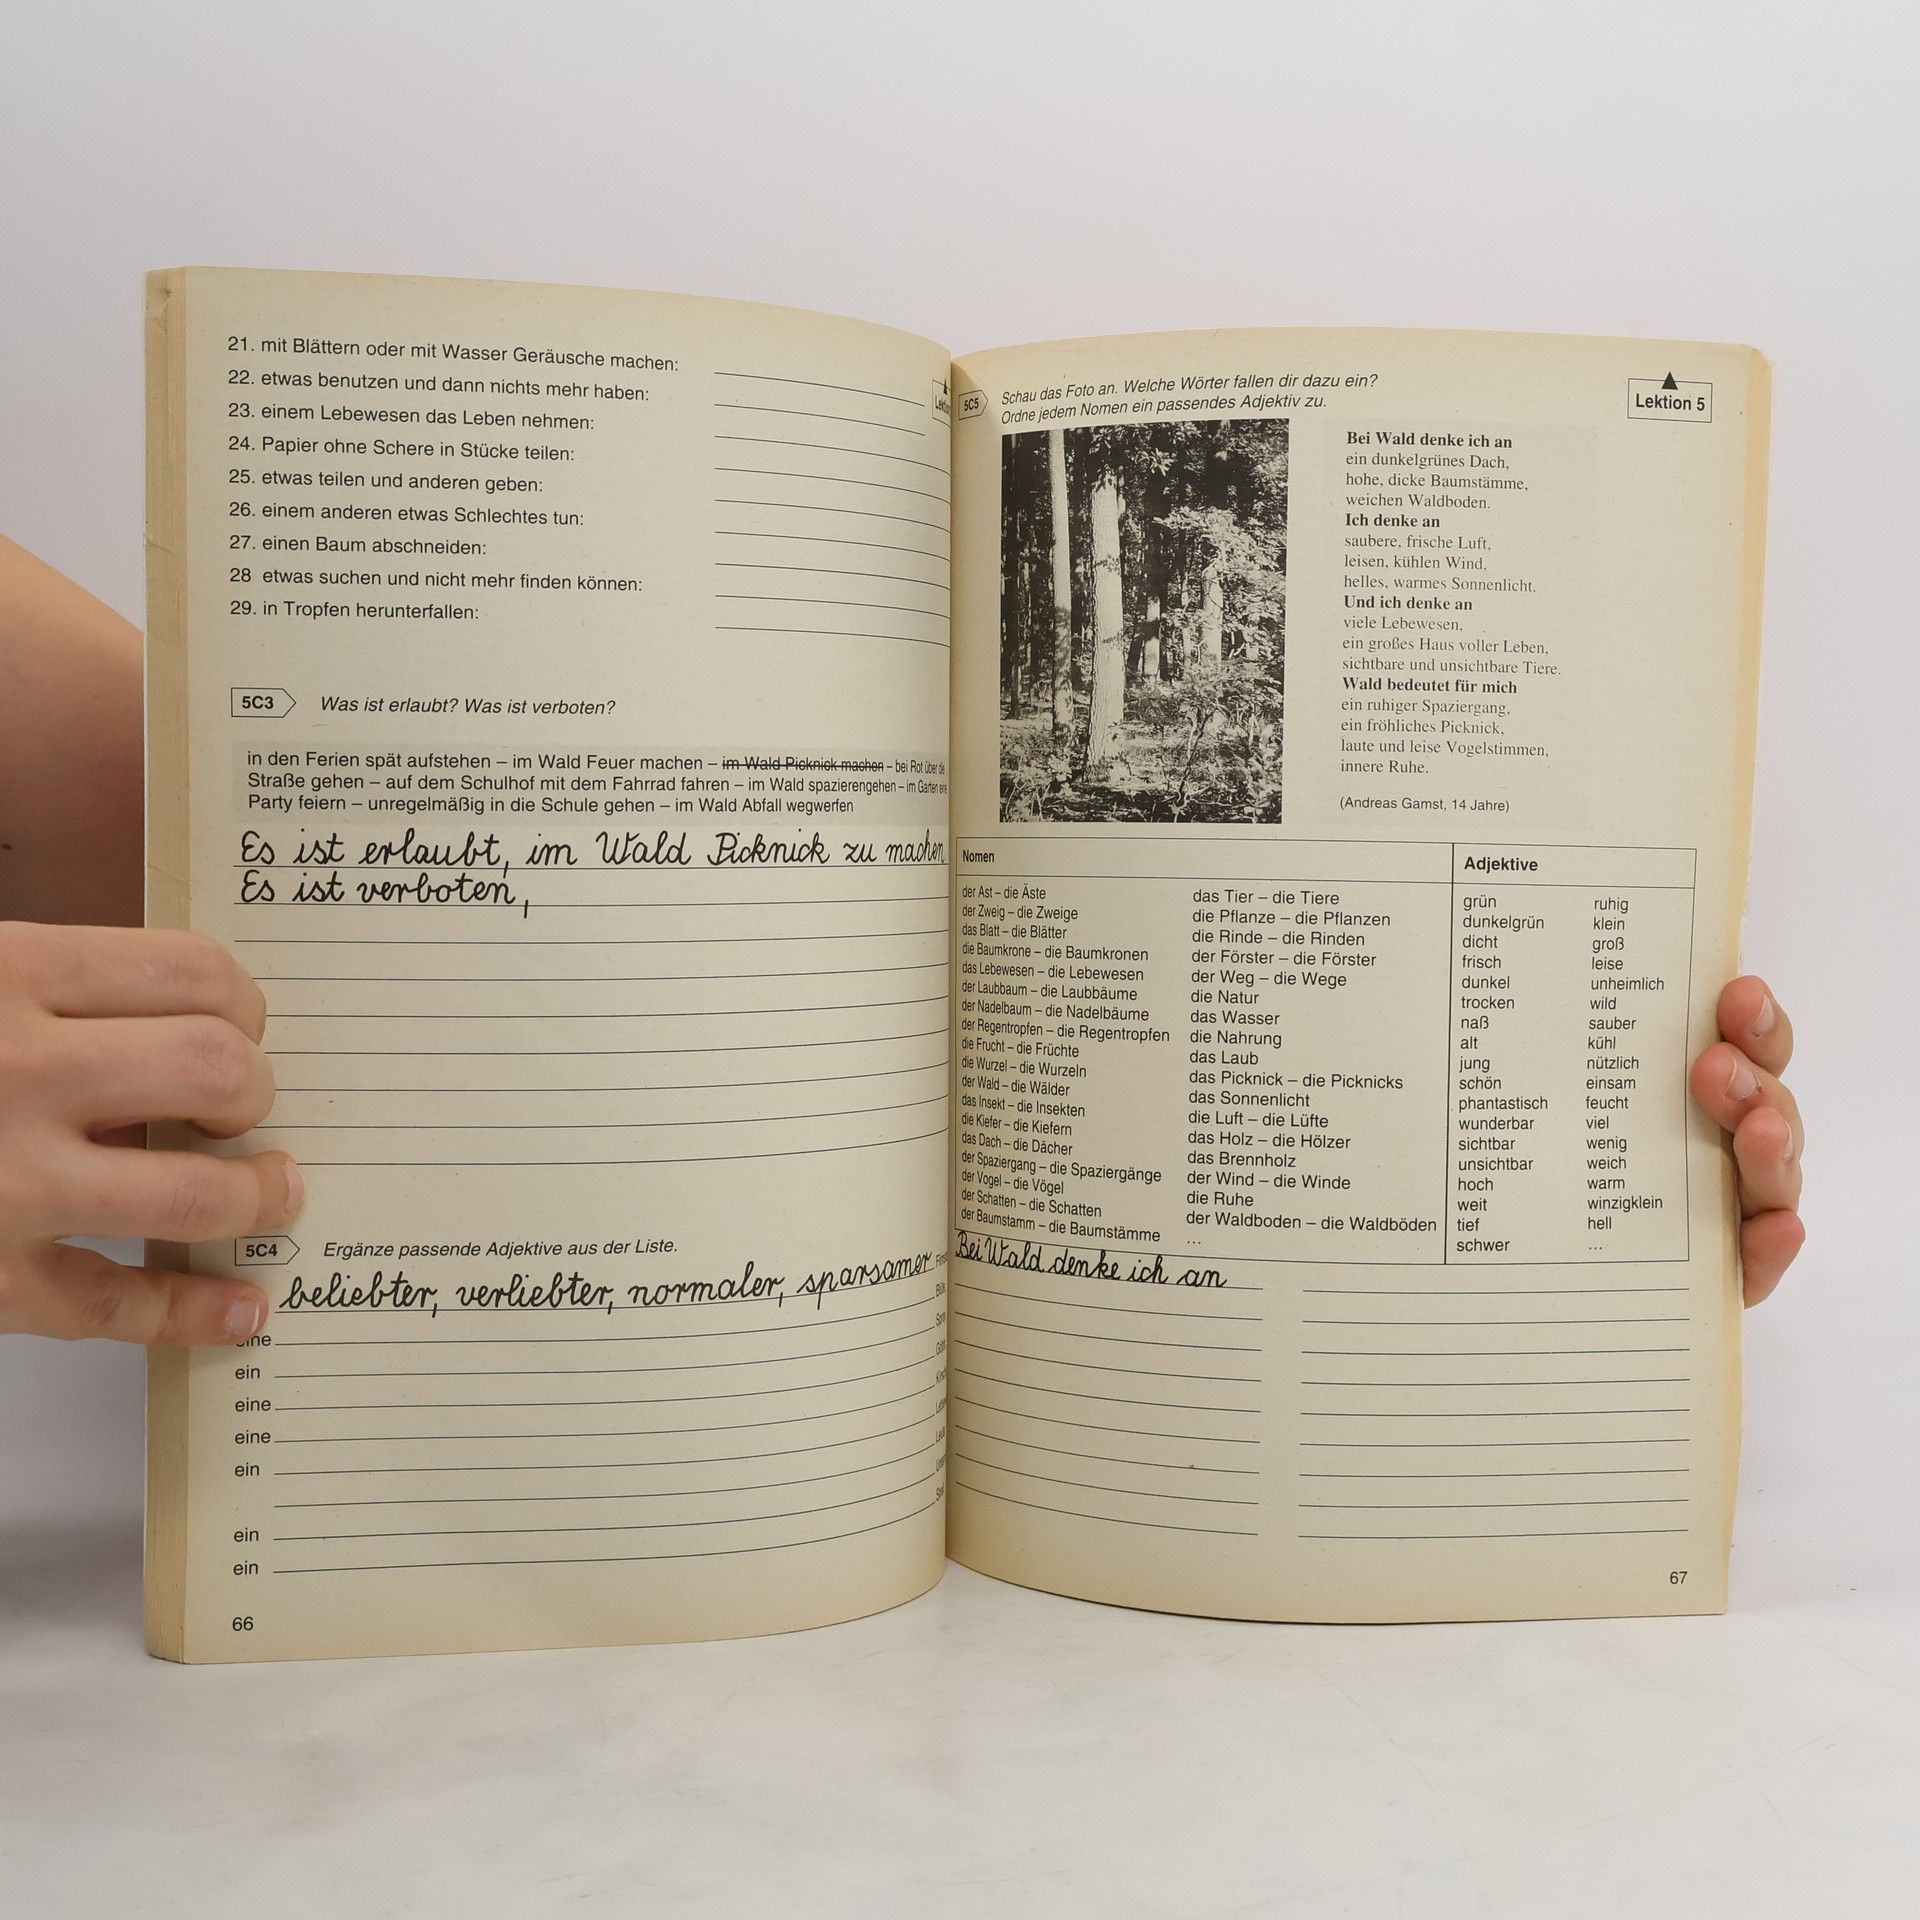 21. mit Blättern oder mit Wasser Geräusche machen:
22. etwas benutzen und dann nichts mehr haben:
23. einem Lebewesen das Leben nehmen:
24. Papier ohne Schere in Stücke teilen:
25. etwas teilen und anderen geben:
26. einem anderen etwas Schlechtes tun:
27. einen Baum abschneiden:
28 etwas suchen und nicht mehr finden können:
29. in Tropfen herunterfallen:
5C3 Was ist erlaubt? Was ist verboten?
in den Ferien spät aufstehen – im Wald Feuer machen – im Wald Picknick machen – bei Rot über die
Straße gehen – auf dem Schulhof mit dem Fahrrad fahren – im Wald spazierengehen – im Garten eine
Party feiern – unregelmäßig in die Schule gehen – im Wald Abfall wegwerfen
Es ist erlaubt, im Wald Picknick zu machen.
Es ist verboten,
5C4 Ergänze passende Adjektive aus der Liste.
beliebter, verliebter, normaler, sparsamer
eine
ein
eine
eine
ein
ein
ein
66
5C5 Schau das Foto an. Welche Wörter fallen dir dazu ein?
Ordne jedem Nomen ein passendes Adjektiv zu.
Lektion 5
Bei Wald denke ich an
ein dunkelgrünes Dach,
hohe, dicke Baumstämme,
weichen Waldboden.
Ich denke an
saubere, frische Luft,
leisen, kühlen Wind,
helles, warmes Sonnenlicht.
Und ich denke an
viele Lebewesen,
ein großes Haus voller Leben,
sichtbare und unsichtbare Tiere.
Wald bedeutet für mich
ein ruhiger Spaziergang,
ein fröhliches Picknick,
laute und leise Vogelstimmen,
innere Ruhe.
(Andreas Gamst, 14 Jahre)
Nomen
der Ast – die Äste
der Zweig – die Zweige
das Blatt – die Blätter
die Baumkrone – die Baumkronen
das Lebewesen – die Lebewesen
der Laubbaum – die Laubbäume
der Nadelbaum – die Nadelbäume
der Regentropfen – die Regentropfen
die Frucht – die Früchte
die Wurzel – die Wurzeln
der Wald – die Wälder
das Insekt – die Insekten
die Kiefer – die Kiefern
das Dach – die Dächer
der Spaziergang – die Spaziergänge
der Vogel – die Vögel
der Schatten – die Schatten
der Baumstamm – die Baumstämme
das Tier – die Tiere
die Pflanze – die Pflanzen
die Rinde – die Rinden
der Förster – die Förster
der Weg – die Wege
die Natur
das Wasser
die Nahrung
das Laub
das Picknick – die Picknicks
das Sonnenlicht
die Luft – die Lüfte
das Holz – die Hölzer
das Brennholz
der Wind – die Winde
die Ruhe
der Waldboden – die Waldböden
...
Adjektive
grün
dunkelgrün
dicht
frisch
dunkel
trocken
naß
alt
jung
schön
phantastisch
wunderbar
sichtbar
unsichtbar
hoch
weit
tief
schwer
ruhig
klein
groß
leise
unheimlich
wild
sauber
kühl
nützlich
einsam
feucht
viel
wenig
weich
warm
winzigklein
hell
...
Bei Wald denke ich an
67